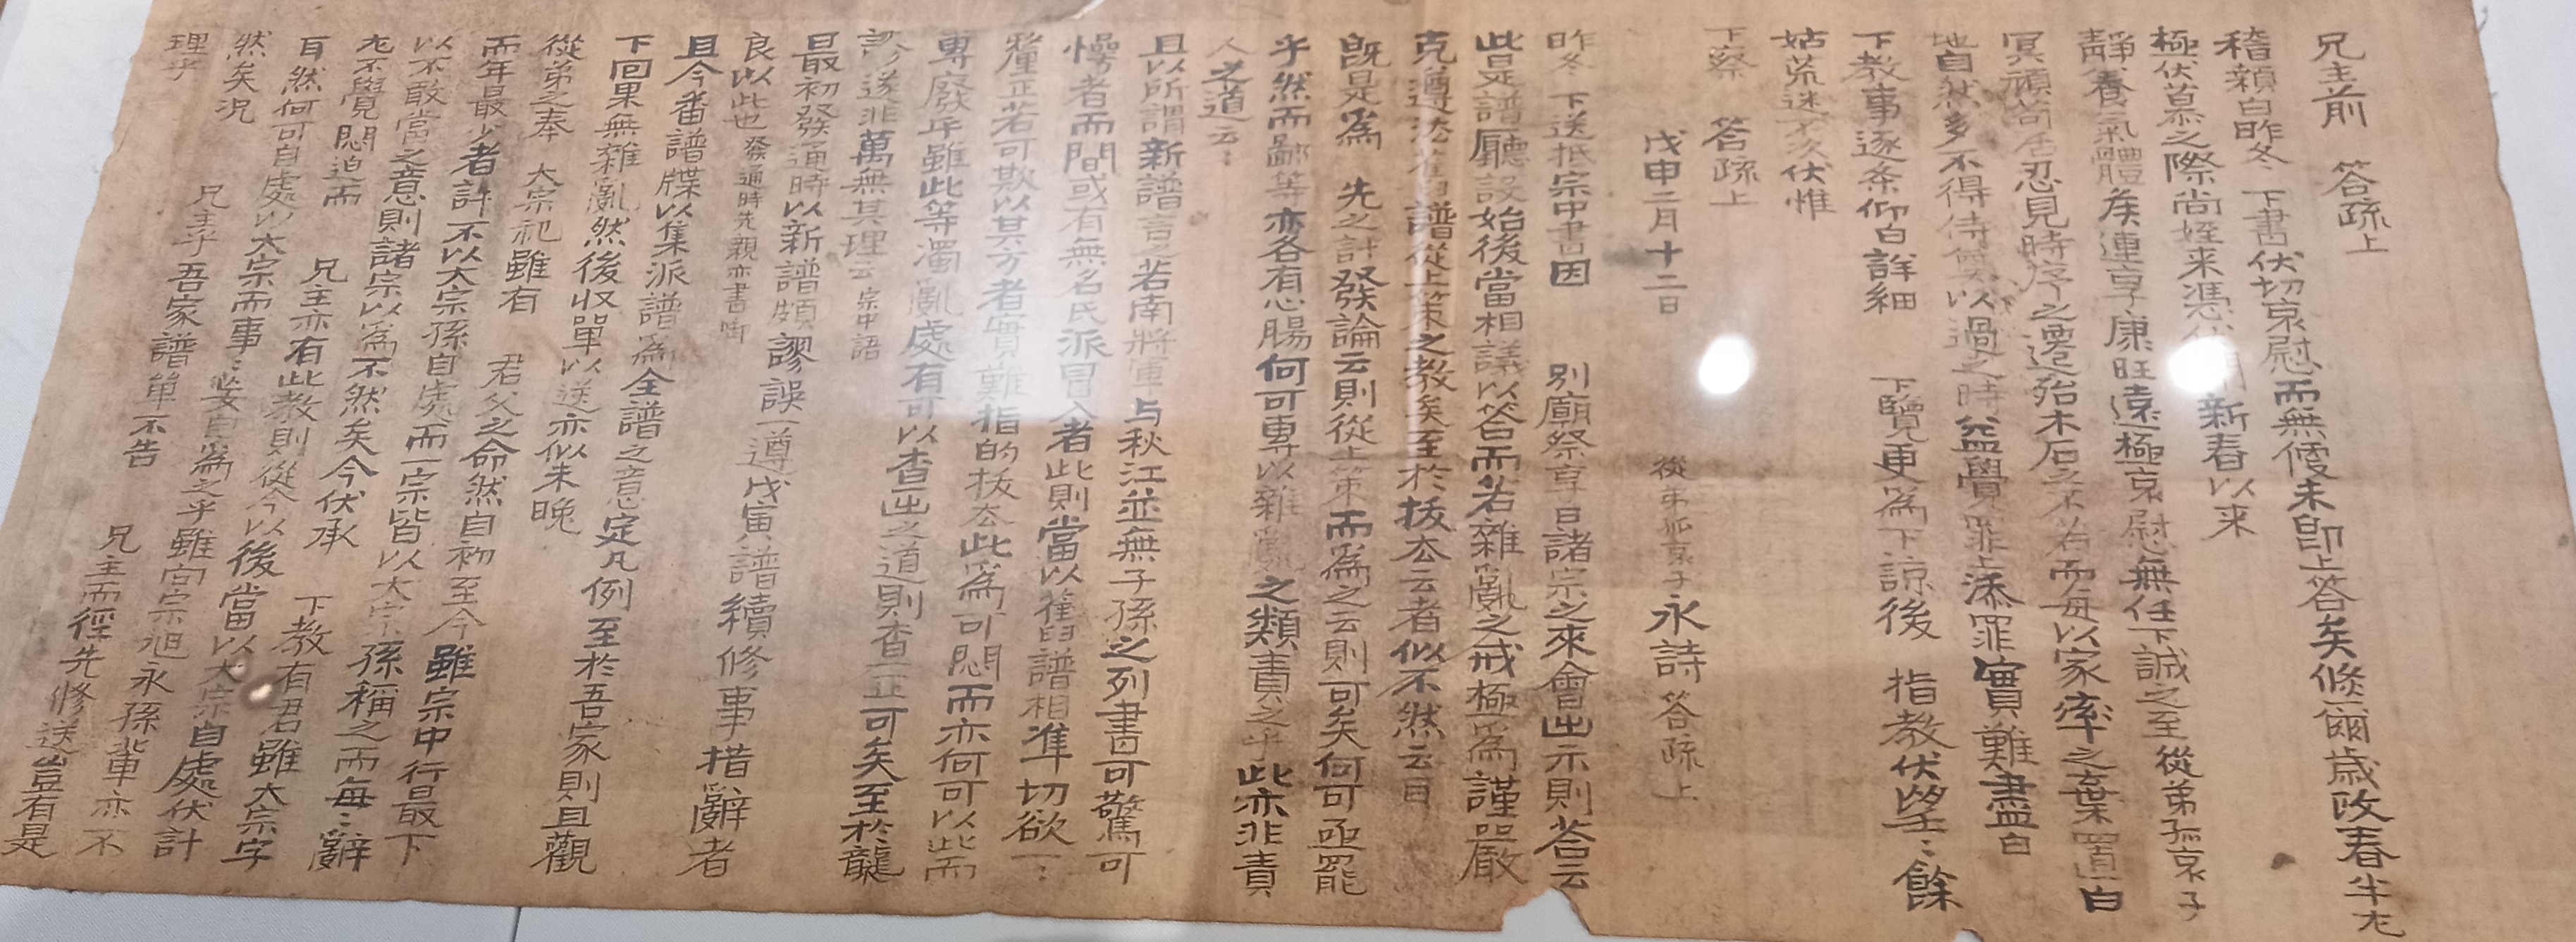 兄主前 答疏上
稽顙白昨冬 下書伏切哀慰而無便未卽上答矣倐爾歲改春半尤
極伏慕之際尚姪来憑伏聞新春以来
靜養氣體矣連享康旺遠極哀慰無任下誠之至從弟孤哀子
冥頑苟居忍見時序之遷殆木石之不若而每以家率之棄置白
地自然多不得侍奠以過之時益覺罪上添罪實難盡白
下教事逐条仰白詳細 下覽更為下諒後 指教伏望〻餘
姑荒迷不次伏惟
下察 答疏上
戊申二月十二日 從弟孤哀子永詩答疏上
昨冬 下送抵宗中書因 別廟祭享日諸宗之來會出示則答云
此是譜廳設始後當相議以答而若雜亂之戒極爲謹嚴
克遵法舊譜從上策之教矣至於拔去云者似不然云耳
旣是爲 先之計發論云則從上策而爲之云則可矣何可亟罷
乎然而鄙等亦各有心腸何可專以雜亂之類責之乎此亦非責
人之道云〻
且以所謂新譜言之若南將軍与秋江並無子孫之列書可驚可
愕者而間或有無名氏派冒入者此則當以舊譜相準切欲一〻
釐正若可欺以其方者實難指的拔去此爲可悶而亦何可以此而
專廢乎雖此等濁亂處有可以查出之道則查正可矣至於襲
謬遂非萬無其理云 宗中語
最初發通時以新譜頗謬誤一遵戊寅譜續修事措辭者
良以此也 發通時先親亦書啣
且今番譜牒以集派譜爲全譜之意定凡例至於吾家則且觀
下回果無雜亂然後収單以送亦似未晚
從弟之奉 大宗祀雖有 君父之命然自初至今雖宗中行最下
而年最少者計不以大宗孫自處而一宗皆以大宗孫稱之而每〻辭
以不敢當之意則諸宗以爲不然矣今伏承 下教有君雖大宗字
尤不覺悶迫而 兄主亦有此教則從今以後當以大宗自處伏計
耳然何可自處以大宗而事〻妄自爲之乎雖宮宗旭永孫輩亦不
然矣况 兄主乎吾家譜單不告 兄主而徑先修送豈有是
理乎